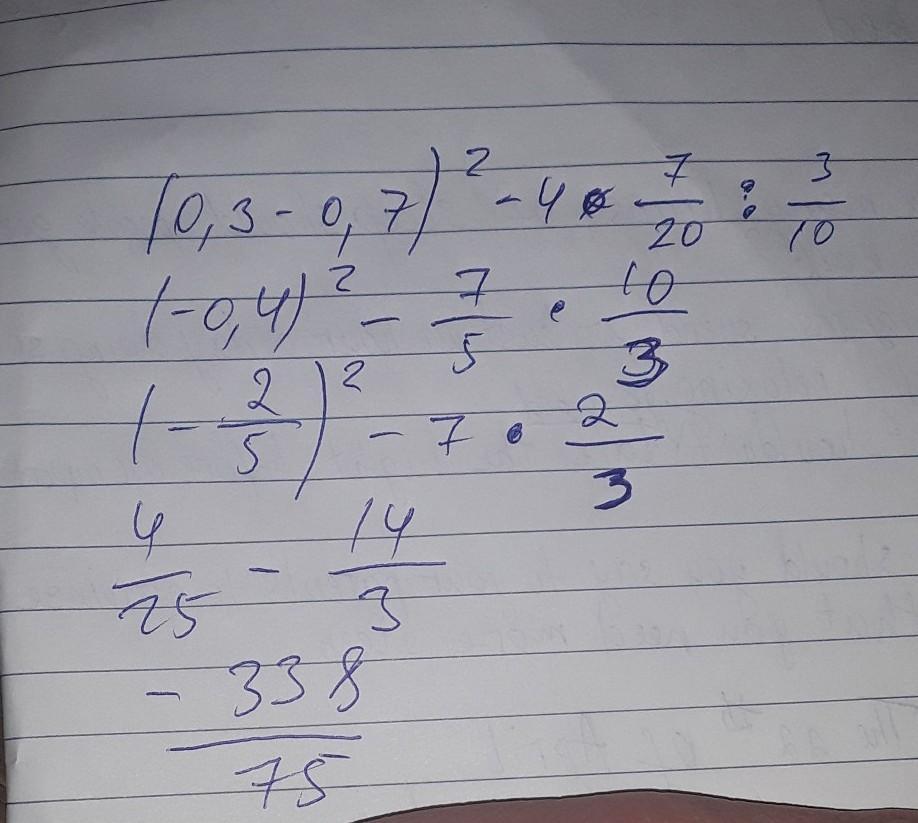 (0,3 - 0,7)² - 4 · 7/20 : 3/10
(-0,4)² - 7/5 · 10/3
(-2/5)² - 7 · 2/3
4/25 - 14/3
- 338/75